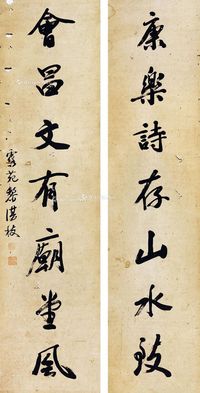 康樂詩存山水致
會昌文有廟堂風
霱苑黎湛枝